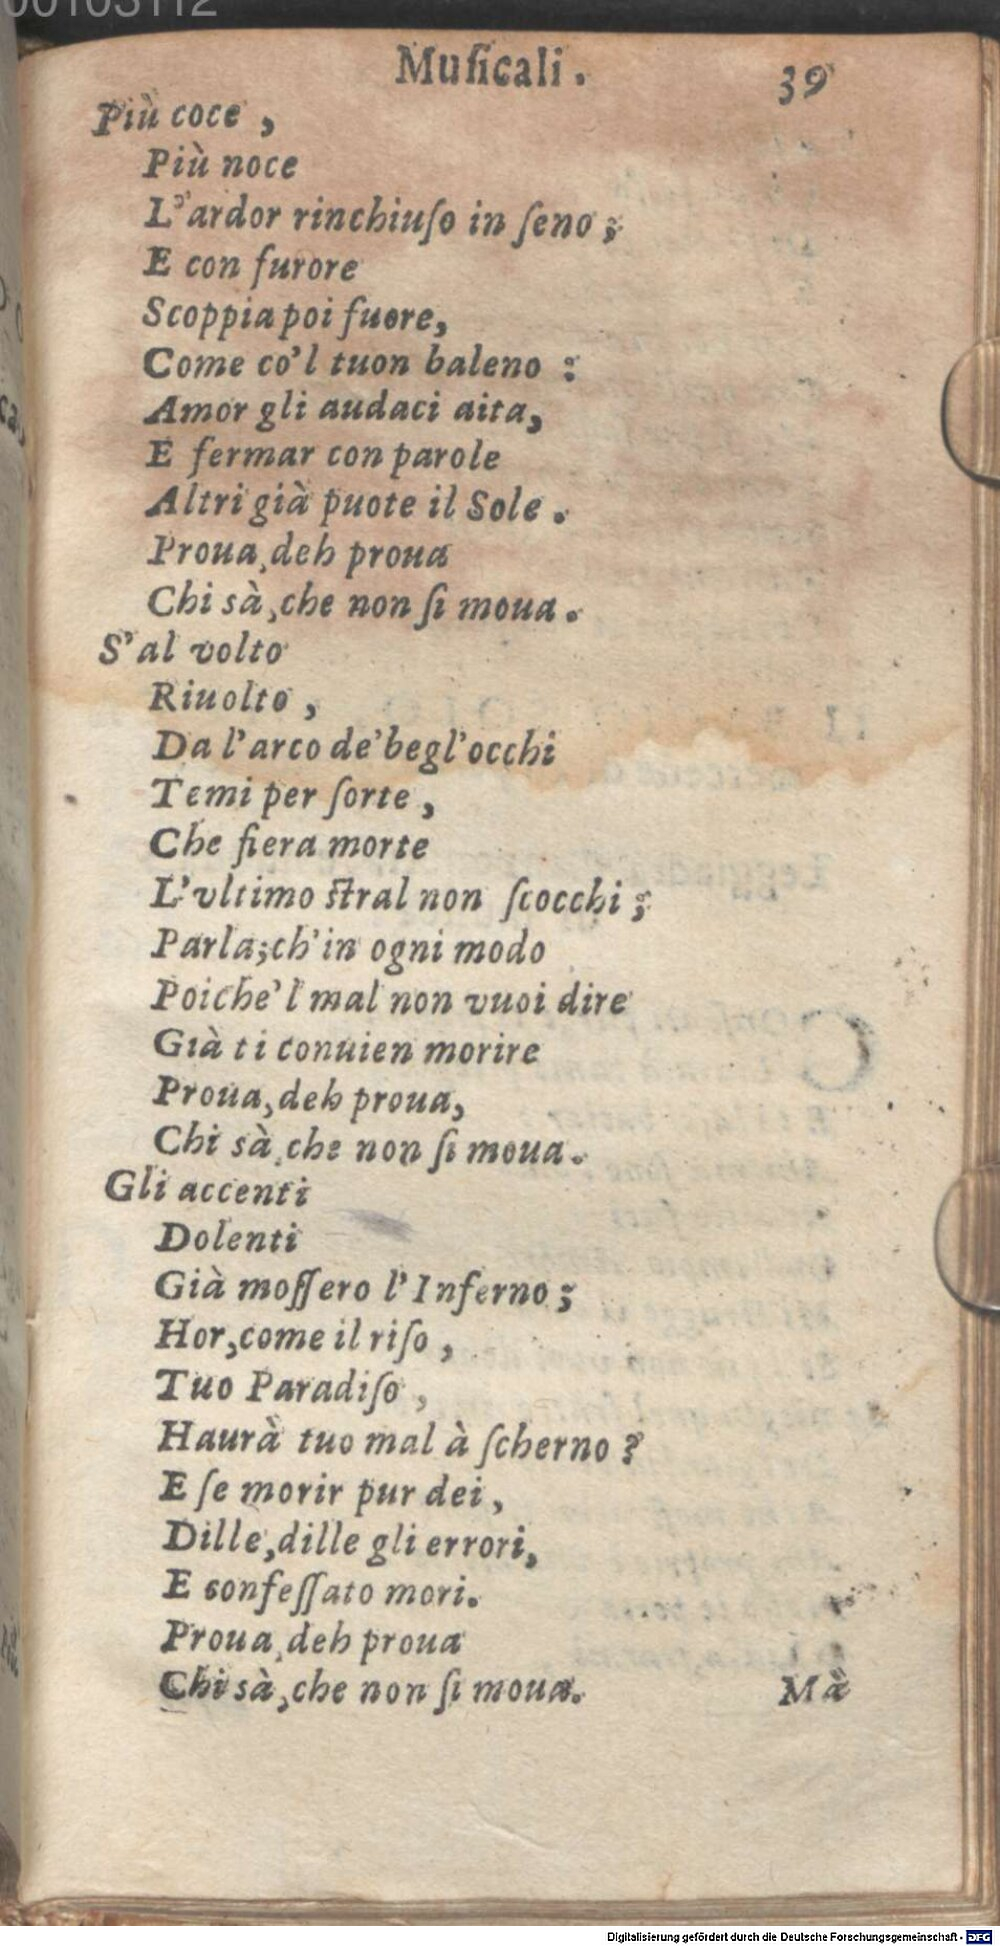 00103112
Muſicali. 39
Più coce,
Più noce
L'ardor rinchiuſo in ſeno;
E con furore
Scoppia poi fuore,
Come co'l tuon baleno:
Amor gli audaci aita,
E fermar con parole
Altri già puote il Sole.
Proua, deh proua
Chi sà, che non ſi moua.
S'al volto
Riuolto,
Da l'arco de' begl'occhi
Temi per ſorte,
Che fiera morte
L'vltimo ſtral non ſcocchi;
Parla; ch'in ogni modo
Poiche'l mal non vuoi dire
Già ti conuien morire
Proua, deh proua,
Chi sà, che non ſi moua.
Gli accenti
Dolenti
Già moſſero l'Inferno;
Hor, come il riſo,
Tuo Paradiſo,
Haurà tuo mal à ſcherno?
E ſe morir pur dei,
Dille, dille gli errori,
E confeſſato mori.
Proua, deh proua
Chi sà, che non ſi moua.
Mà
Digitalisierung gefördert durch die Deutsche Forschungsgemeinschaft - DFG